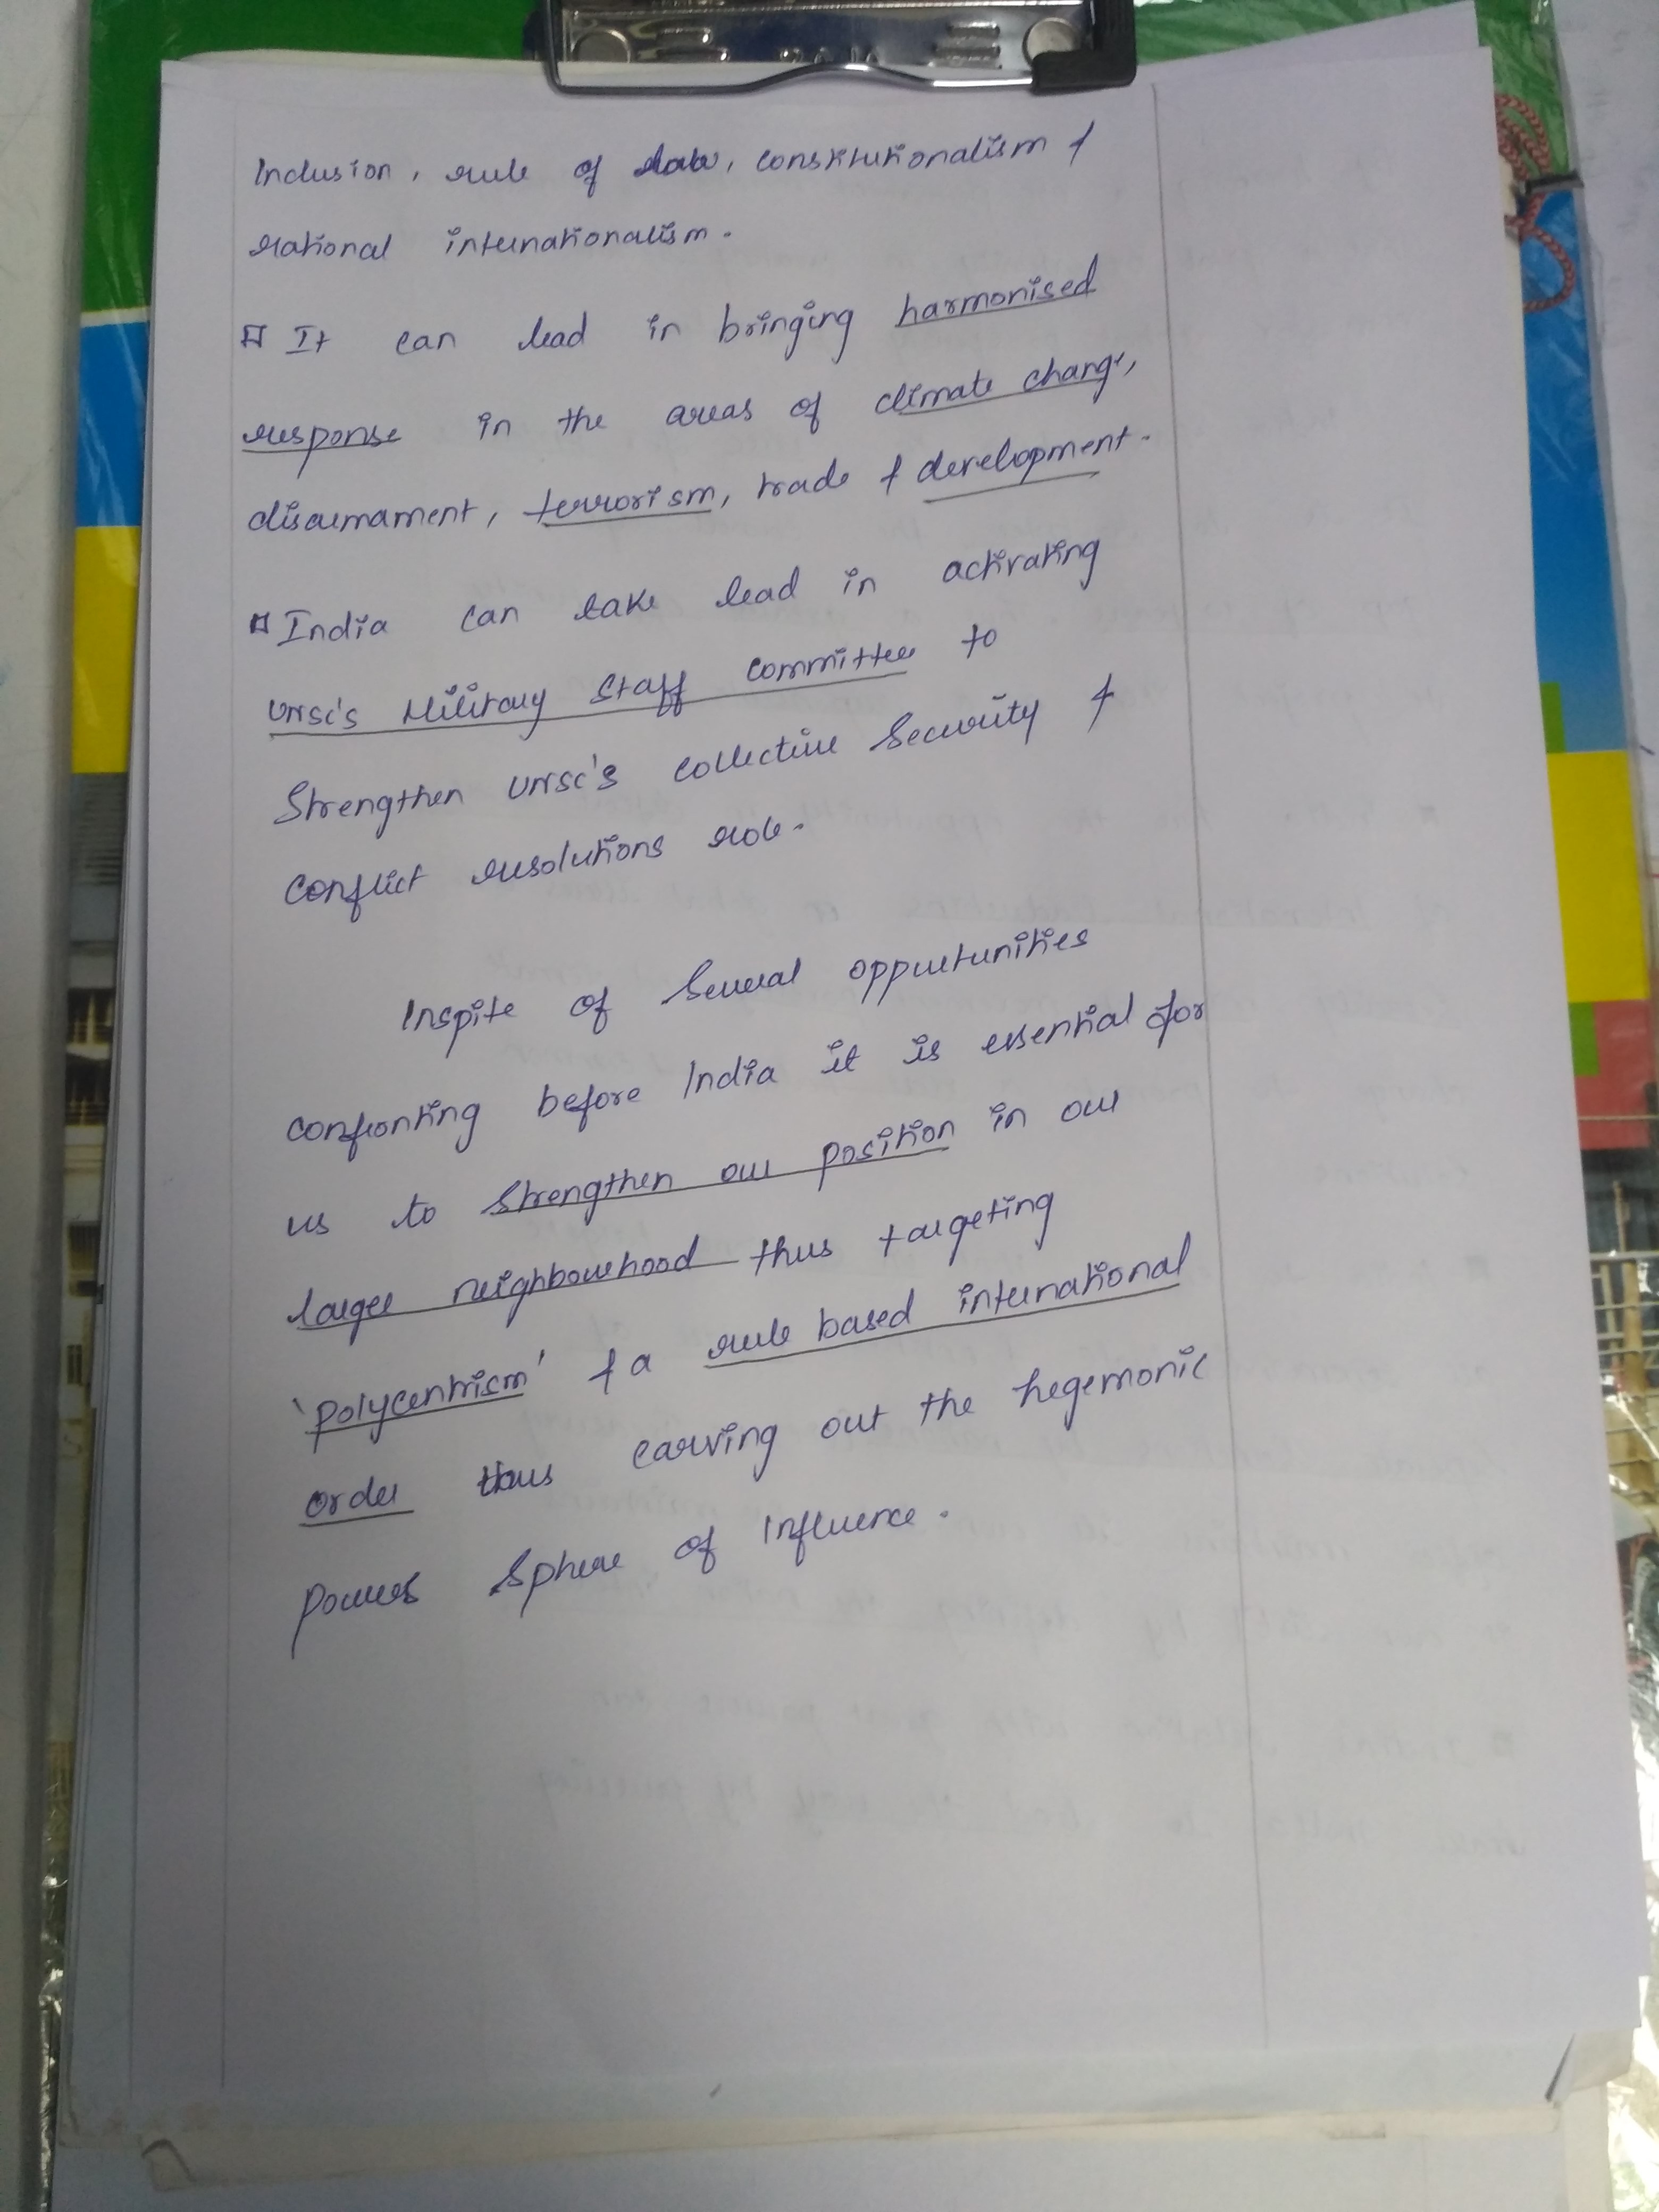 Inclusion, rule of law, constitutionalism &
rational internationalism.
It can lead in bringing harmonised
response in the areas of climate change,
disarmament, terrorism, trade & development.
India can take lead in activating
UNSC's Military Staff Committee to
Strengthen UNSC's collective Security &
conflict resolutions role.
Inspite of Several oppurtunities
confronting before India it is essential for
us to Strengthen our position in our
larger neighbourhood thus targeting
'polycentrism' & a rule based international
order thus carving out the hegemonic
powers Sphere of Influence.